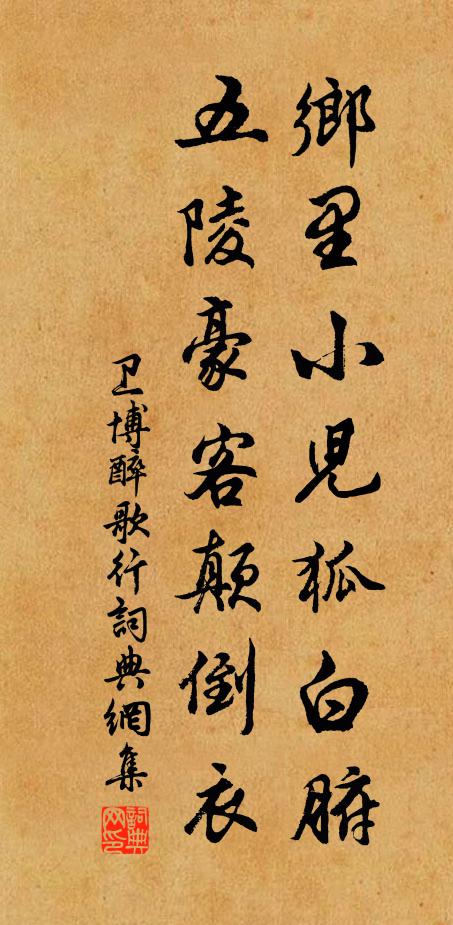 鄉里小兒狐白腑
五陵豪客顛倒衣
卫博醉歌行詞典網集
詞典网印